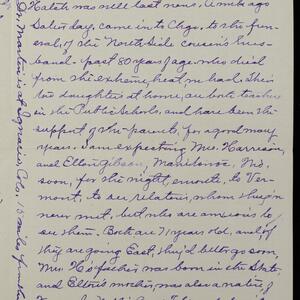 Halah was well last news. A week ago
Saturday, came in to Chgo. to the fun-
eral, of the North Side cousin's hus-
band - past 80 years of age, who died
from the extreme, heat in had. Their
two daughters at home, are both teachers
in the Public Schools, and have been the
support of the parents, for a good many
years. I am expecting Mrs. Harrison,
and Ellen Gibson, Manitowoc, Wis.
soon, for the night, enroute, to Ver-
mont, to see relatives, whom they've
never met, but who are anxious to
see them. Both are 71 years old, and if
they are going East, they'd better go soon,
Mrs. H's father was born in the State,
and Ellen's mother, was also a native of
Dr. Martin is at Ignacio, Colo, 15 miles from the